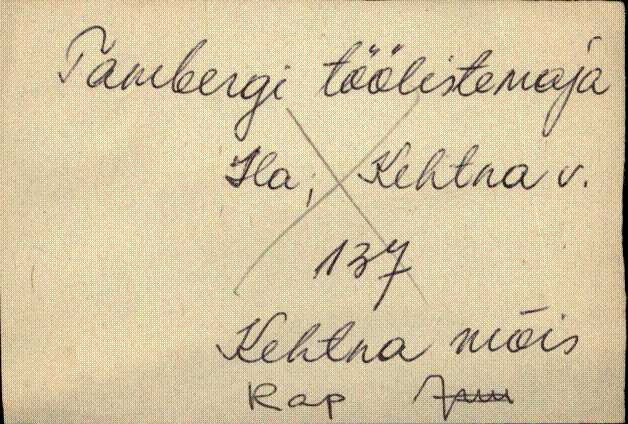 Tambergi töölistemaja
Kehtna v.
137
Kehtna mõis
Rap